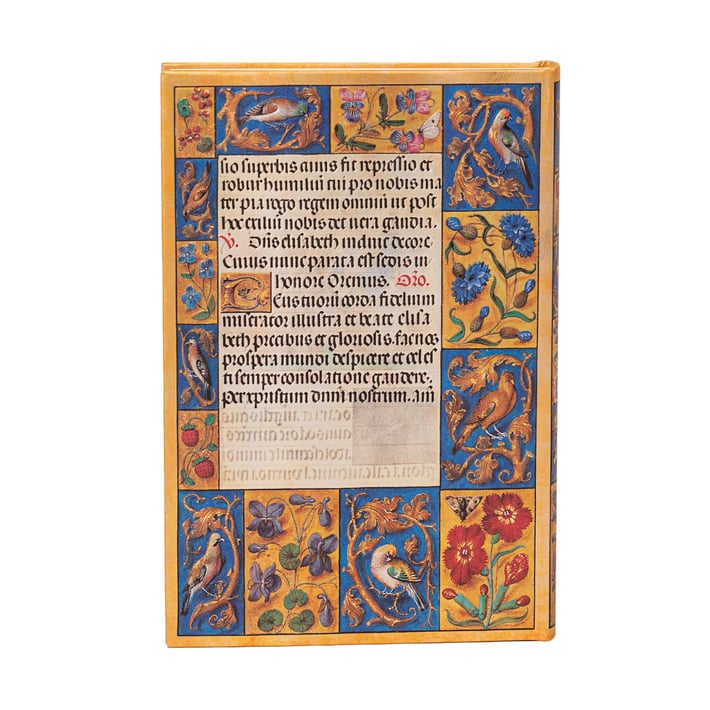 sio superbis cuius fit repressio et
robur humiliū cui pro nobis ma
ter pia rogo regem omniū ut post
hoc exiliū nobis det uera gaudia.
V. Dn̄s elisabeth induit decore.
Cuius nunc parata est sedis in
honore Oremus. Oro.
Deus tuorū corda fidelium
miserator illustra et beate elisa
beth precibus et gloriosis. fac nos
prospera mundi despicere et celes
ti semper consolatione gaudere.
per xpristum dnm nostrum. am